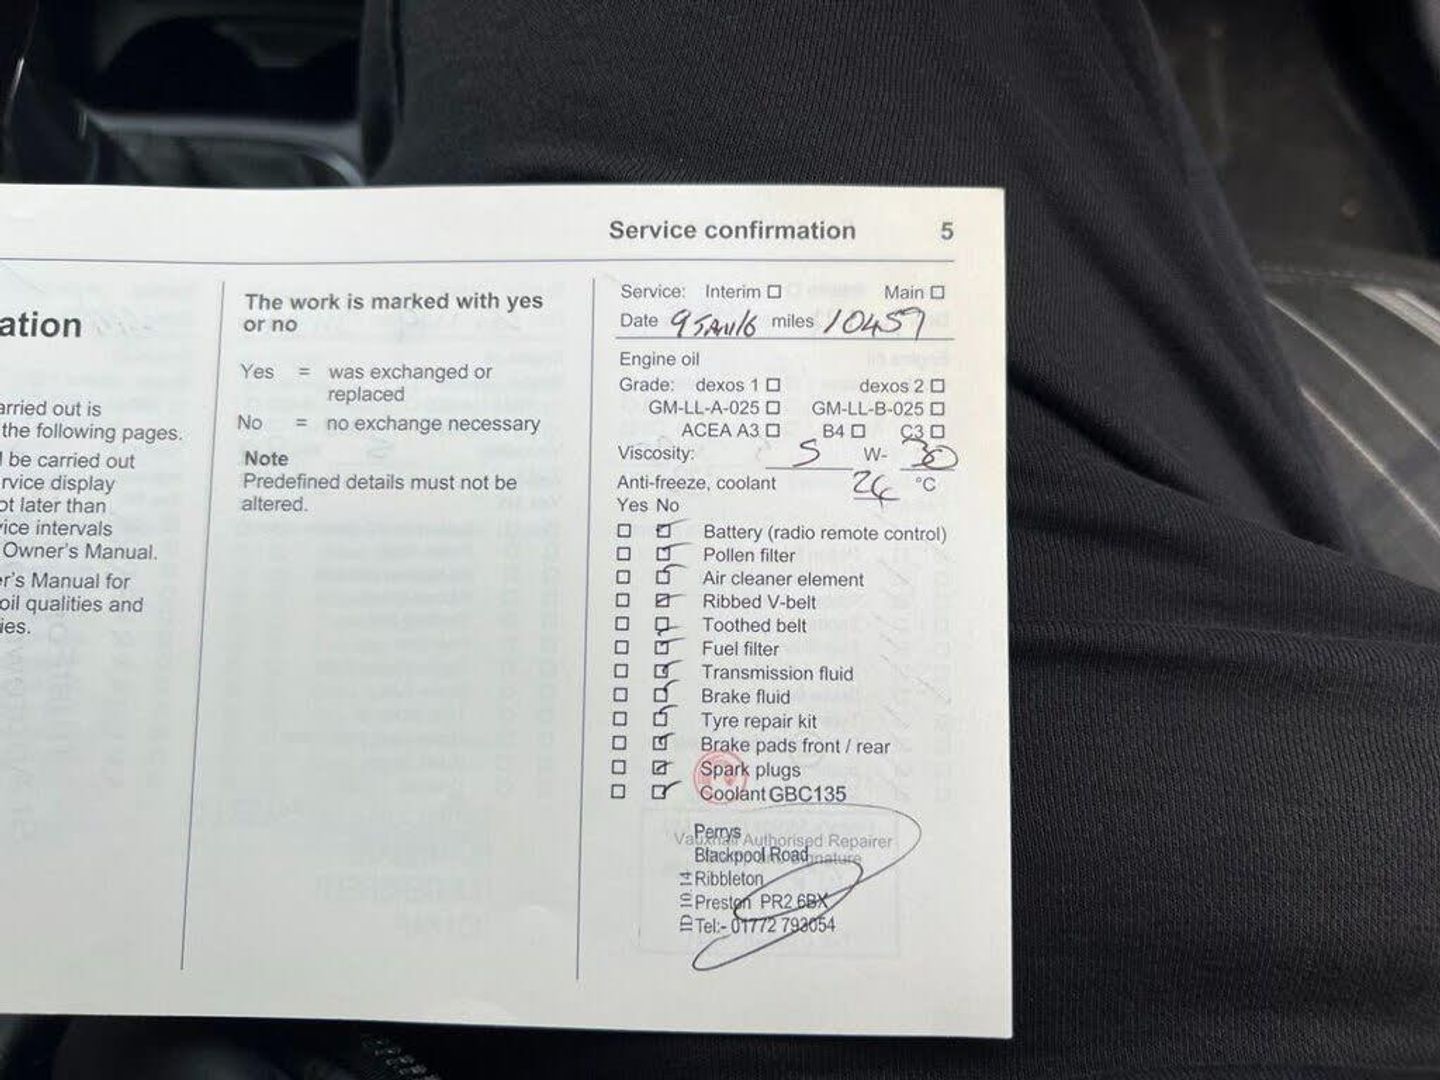 Service confirmation 5
ation
arried out is
the following pages.
l be carried out
rvice display
ot later than
ice intervals
Owner's Manual.
er's Manual for
oil qualities and
ies.
The work is marked with yes
or no
Yes = was exchanged or
replaced
No = no exchange necessary
Note
Predefined details must not be
altered.
Service: Interim ☐ Main ☐
Date 9 JAN 16 miles 10457
Engine oil
Grade: dexos 1 ☐ dexos 2 ☐
GM-LL-A-025 ☐ GM-LL-B-025 ☐
ACEA A3 ☐ B4 ☐ C3 ☐
Viscosity: 5 W- 30
Anti-freeze, coolant °C
Yes No
Battery (radio remote control)
Pollen filter
Air cleaner element
Ribbed V-belt
Toothed belt
Fuel filter
Transmission fluid
Brake fluid
Tyre repair kit
Brake pads front / rear
Spark plugs
Coolant GBC135
Perrys
Vauxhall Authorised Repairer
Blackpool Road
Signature
Ribbleton
Preston PR2 6BX
Tel:- 01772 793054
ID 10.14